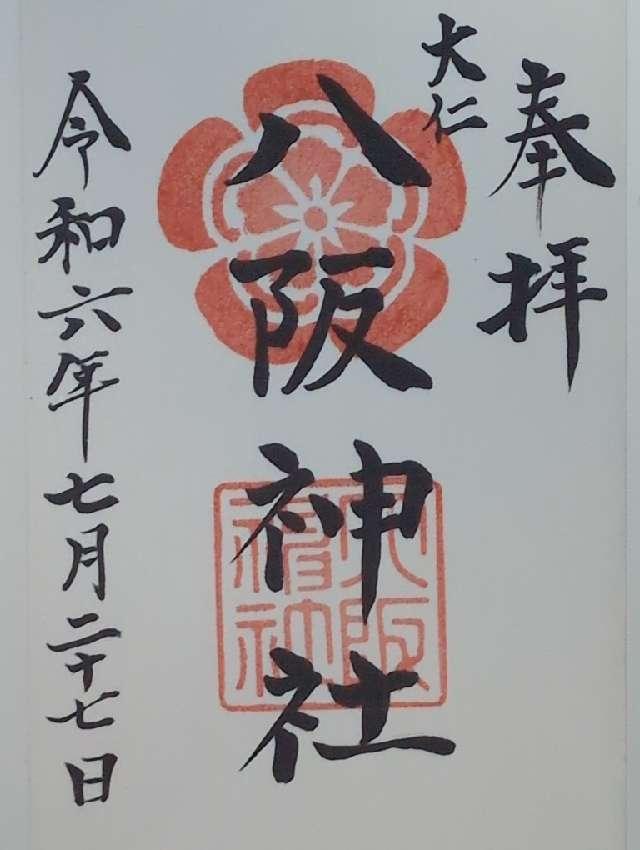 奉拝
大仁
八阪神社
令和六年七月二十七日